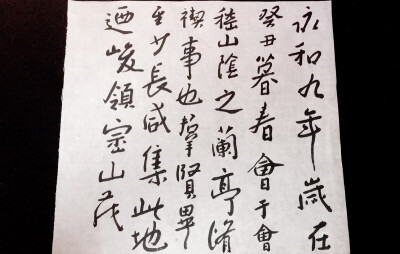 永和九年歲在
癸丑暮春會于會
嵇山陰之蘭亭脩
禊事也羣賢畢
至少長咸集此地
迺峻領崇山茂